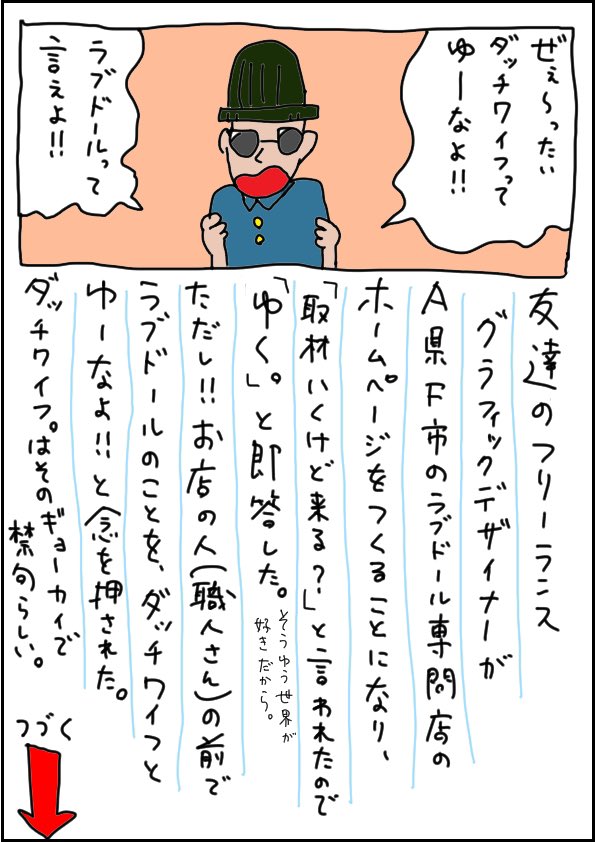 ぜぇ〜ったい
ダッチワイフって
ゆーなよ!!
ラブドールって
言えよ!!
友達のフリーランス
グラフィックデザイナーが
A県F市のラブドール専門店の
ホームページをつくることになり、
「取材いくけど来る?」と言われたので
「ゆく。」と即答した。
そうゆう世界が
好きだから。
ただし!!お店の人(職人さん)の前で
ラブドールのことを、ダッチワイフと
ゆーなよ!!と念を押された。
ダッチワイフ。はそのギョーカイで
禁句らしい。
つづく